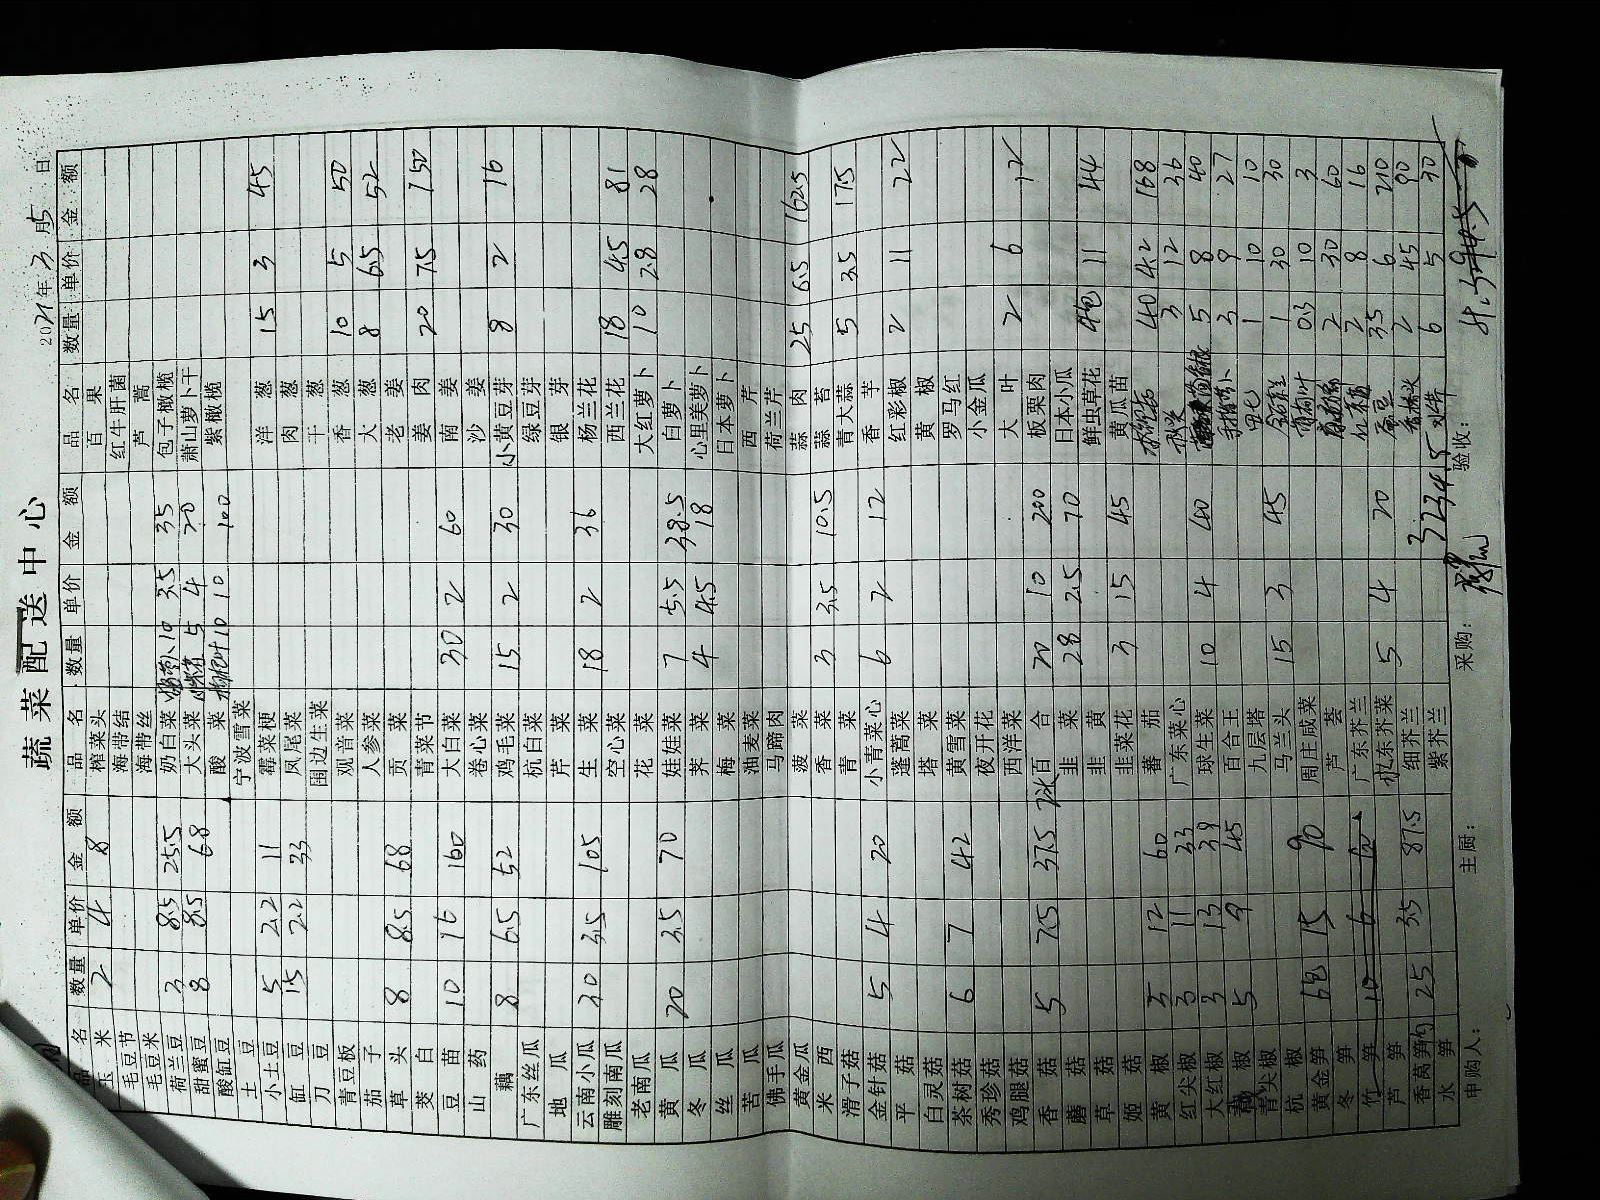 蔬菜配送中心
2021年3月5日
品名 数量 单价 金额 品名 数量 单价 金额 品名 数量 单价 金额
玉米 2 4 8 榨菜头 百果
毛豆节 海带结 红牛肝菌
毛豆米 海带丝 芦蒿
荷兰豆 3 8.5 25.5 奶白菜 10 3.5 35 包子橄榄
甜蜜豆 8 8.5 68 大头菜 5 4 20 萧山萝卜干
酸缸豆 酸菜 10 10 100 紫橄榄
土豆 宁波雪菜
小土豆 5 2.2 11 霉菜梗 洋葱 15 3 45
缸豆 15 2.2 33 凤尾菜 肉葱
刀豆 围边生菜 干葱
青豆板 观音菜 香葱 10 5 50
茄子 人参菜 大葱 8 6.5 52
草头 8 8.5 68 贡菜 老姜
茭白 青菜节 姜肉 20 7.5 150
豆苗 10 16 160 大白菜 30 2 60 南姜
山药 卷心菜 沙姜
藕 8 6.5 52 鸡毛菜 15 2 30 小黄豆芽 8 2 16
广东丝瓜 杭白菜 绿豆芽
地瓜 芹菜 银芽
云南小瓜 30 3.5 105 生菜 18 2 36 杨兰花
雕刻南瓜 空心菜 西兰花 18 4.5 81
老南瓜 花菜 大红萝卜 10 2.8 28
黄瓜 20 3.5 70 娃娃菜 7 5.5 38.5 白萝卜
冬瓜 荠菜 4 4.5 18 心里美萝卜
丝瓜 梅菜 日本萝卜
苦瓜 油麦菜 西芹
佛手瓜 马蹄肉 荷兰芹
黄金瓜 菠菜 蒜肉 25 6.5 162.5
米西 香菜 3 3.5 10.5 蒜苔
滑子菇 青菜 青大蒜 5 3.5 17.5
金针菇 5 4 20 小青菜心 6 2 12 香芋
平菇 蓬蒿菜 红彩椒 2 11 22
白灵菇 塔菜 黄椒
茶树菇 6 7 42 黄雪菜 罗马红
秀珍菇 夜开花 小金瓜
鸡腿菇 西洋菜 大叶 2 6 12
香菇 5 7.5 37.5 百合 20 10 200 板栗肉
蘑菇 韭菜 28 2.5 70 日本小瓜
草菇 韭黄 鲜虫草花 4包 11 44
姬菇 韭菜花 3 15 45 黄瓜苗
黄椒 5 12 60 蕃茄 40 4.2 168
红尖椒 3 11 33 广东菜心 3 12 36
大红椒 3 13 39 球生菜 10 4 40 5 8 40
椒 5 9 45 百合王 3 9 27
青尖椒 九层塔 1 10 10
杭椒 马兰头 15 3 45 1 30 30
黄金笋 6包 15 90 周庄咸菜 0.3 10 3
冬笋 芦荟 2 30 60
竹笋 10 6 60 广东芥兰 2 8 16
芦笋 广东芥菜 5 4 20 35 6 210
香莴笋 25 3.5 87.5 细芥兰 2 45 90
水笋 紫芥兰 6 5 30
3234.5
申购人： 主厨： 采购： 验收：